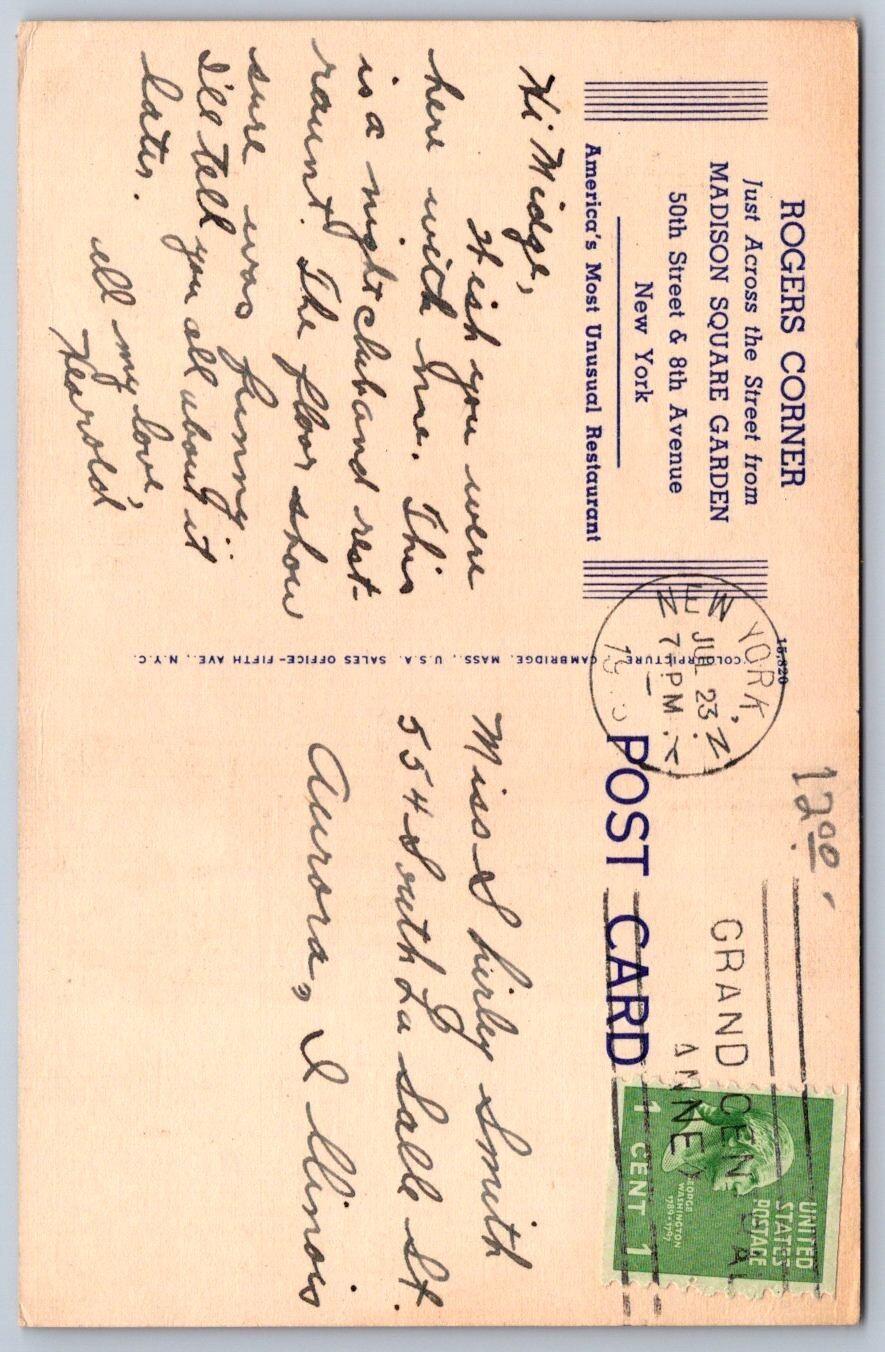 ROGERS CORNER
Just Across the Street from
MADISON SQUARE GARDEN
50th Street & 8th Avenue
New York
America's Most Unusual Restaurant
Hi Midge,
Wish you were
here with me. This
is a night club and rest-
raunt. The floor show
sure was funny.
I'll tell you all about it
later.
All my love,
Hearold
15,820
"COLOURPICTURE" CAMBRIDGE, MASS., U.S.A. SALES OFFICE-FIFTH AVE., N.Y.C.
NEW YORK, N.Y.
JUL 23
7 PM
12.00
POST CARD
GRAND CENTRAL
ANNEX
UNITED
STATES
POSTAGE
GEORGE
WASHINGTON
1789-1797
1 CENT 1
Miss Shirley Smith
554 South La Salle St.
Aurora, Illinois